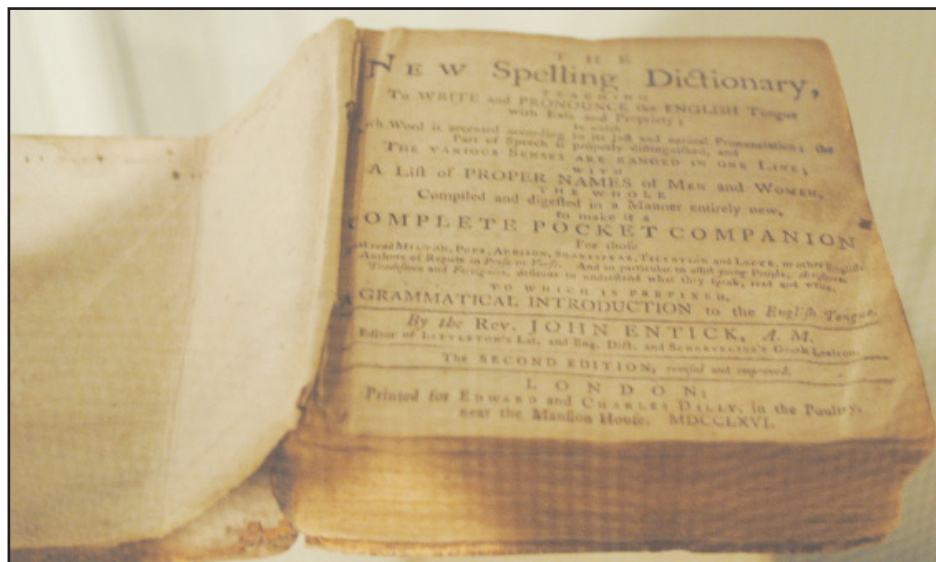 THE
NEW Spelling Dictionary,
TEACHING
To WRITE and PRONOUNCE the ENGLISH Tongue
with Ease and Propriety;
In which
ach Word is accented according to its just and natural Pronunciation; the
Part of Speech is properly distinguished, and
THE VARIOUS SENSES ARE RANGED IN ONE LINE;
WITH
A Liſt of PROPER NAMES of MEN and WOMEN.
THE WHOLE
Compiled and digeſted in a Manner entirely new,
to make it a
COMPLETE POCKET COMPANION
For thoſe
at read MILTON, POPE, ADDISON, SHAKESPEAR, TILLOTSON and LOCKE, or other Engliſh
Authors of Repute in Proſe or Verſe. And in particular to aſſiſt young People,
and Foreigners, deſirous to underſtand what they ſpeak, read and write.
TO WHICH IS PREFIXED,
A GRAMMATICAL INTRODUCTION to the Engliſh Tongue.
By the Rev. JOHN ENTICK, A. M.
Editor of LITTLETON's Lat. and Eng. Dict. and SCHREVELIUS's Greek Lexicon.
The SECOND EDITION, reviſed and improved.
LONDON:
Printed for EDWARD and CHARLES DILLY, in the Poultry,
near the Manſion Houſe. MDCCLXVI.